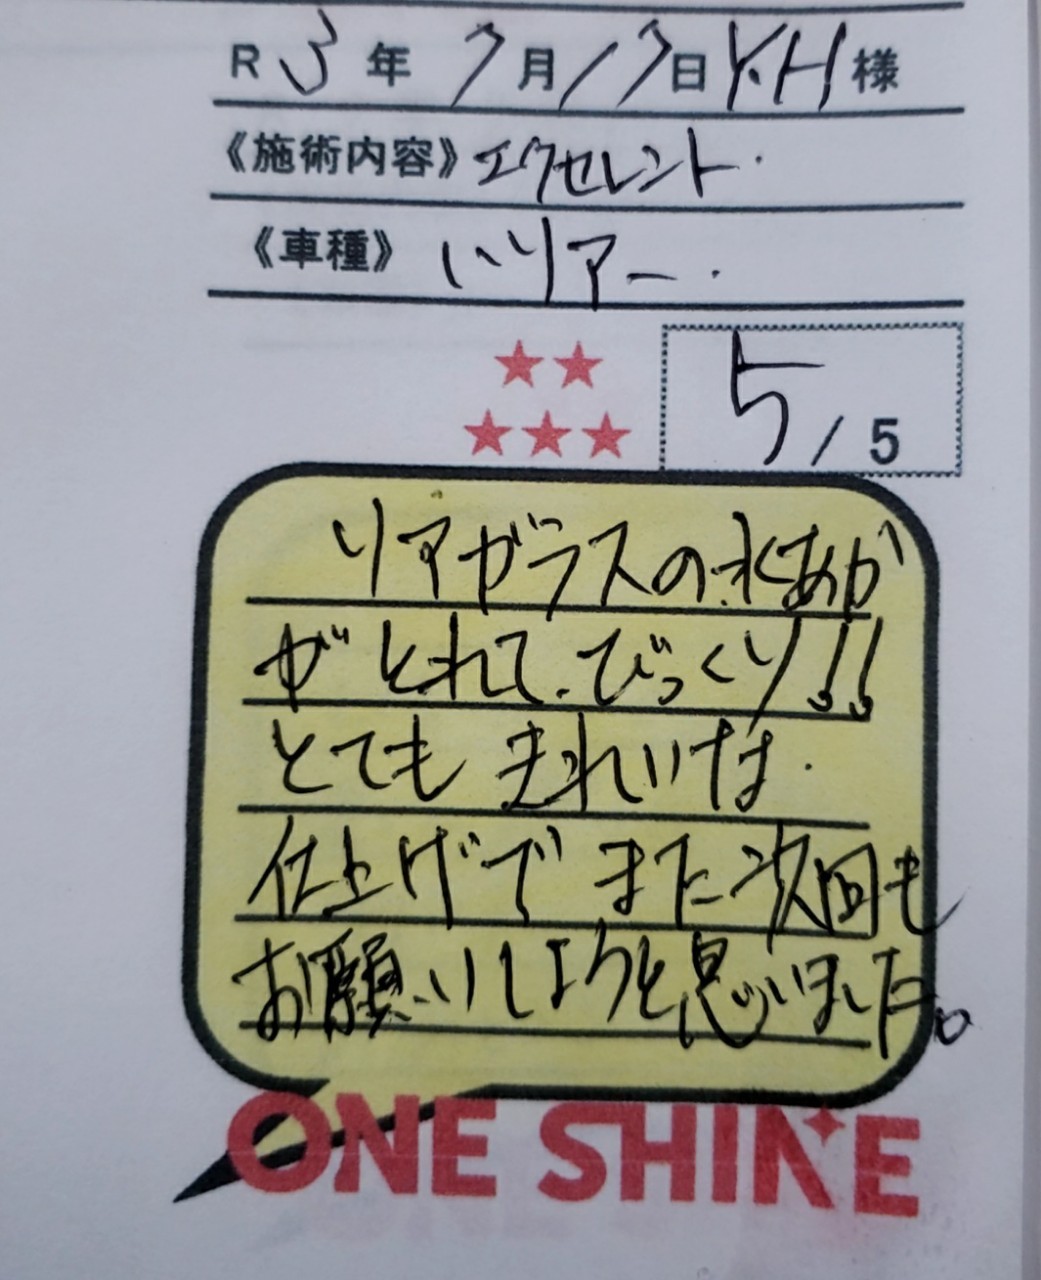 R 3年 7月17日 Y.H様
《施術内容》エクセレント.
《車種》ハリアー.
★★
★★★
5/5
リアガラスの水あか
がとれて、びっくり!!
とてもきれいな.
仕上げでまた次回も
お願いしようと思いました。
ONE SHINE